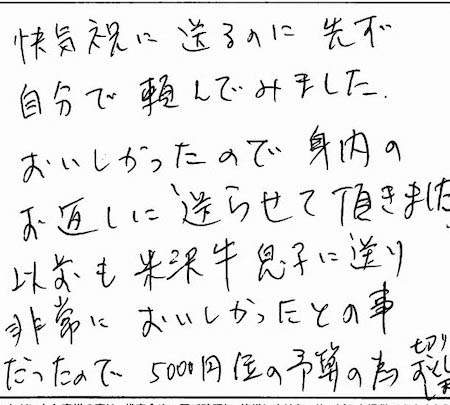 快気祝に送るのに先ず
自分で頼んでみました.
おいしかったので身内の
お返しに送らせて頂きました
以前も米沢牛息子に送り
非常においしかったとの事
だったので5000円位の予算の為切り